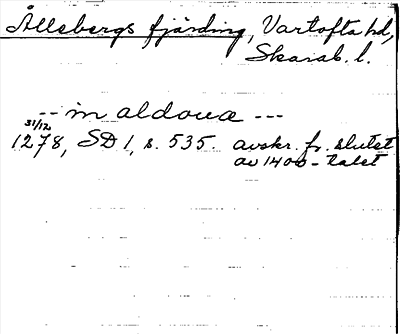 Ållebergs fjärding, Vartofta hd,
Skarab. l.
-- in aldoua ---
31/12
1278, SD 1, s. 535. avskr. fr. slutet
av 1400-talet